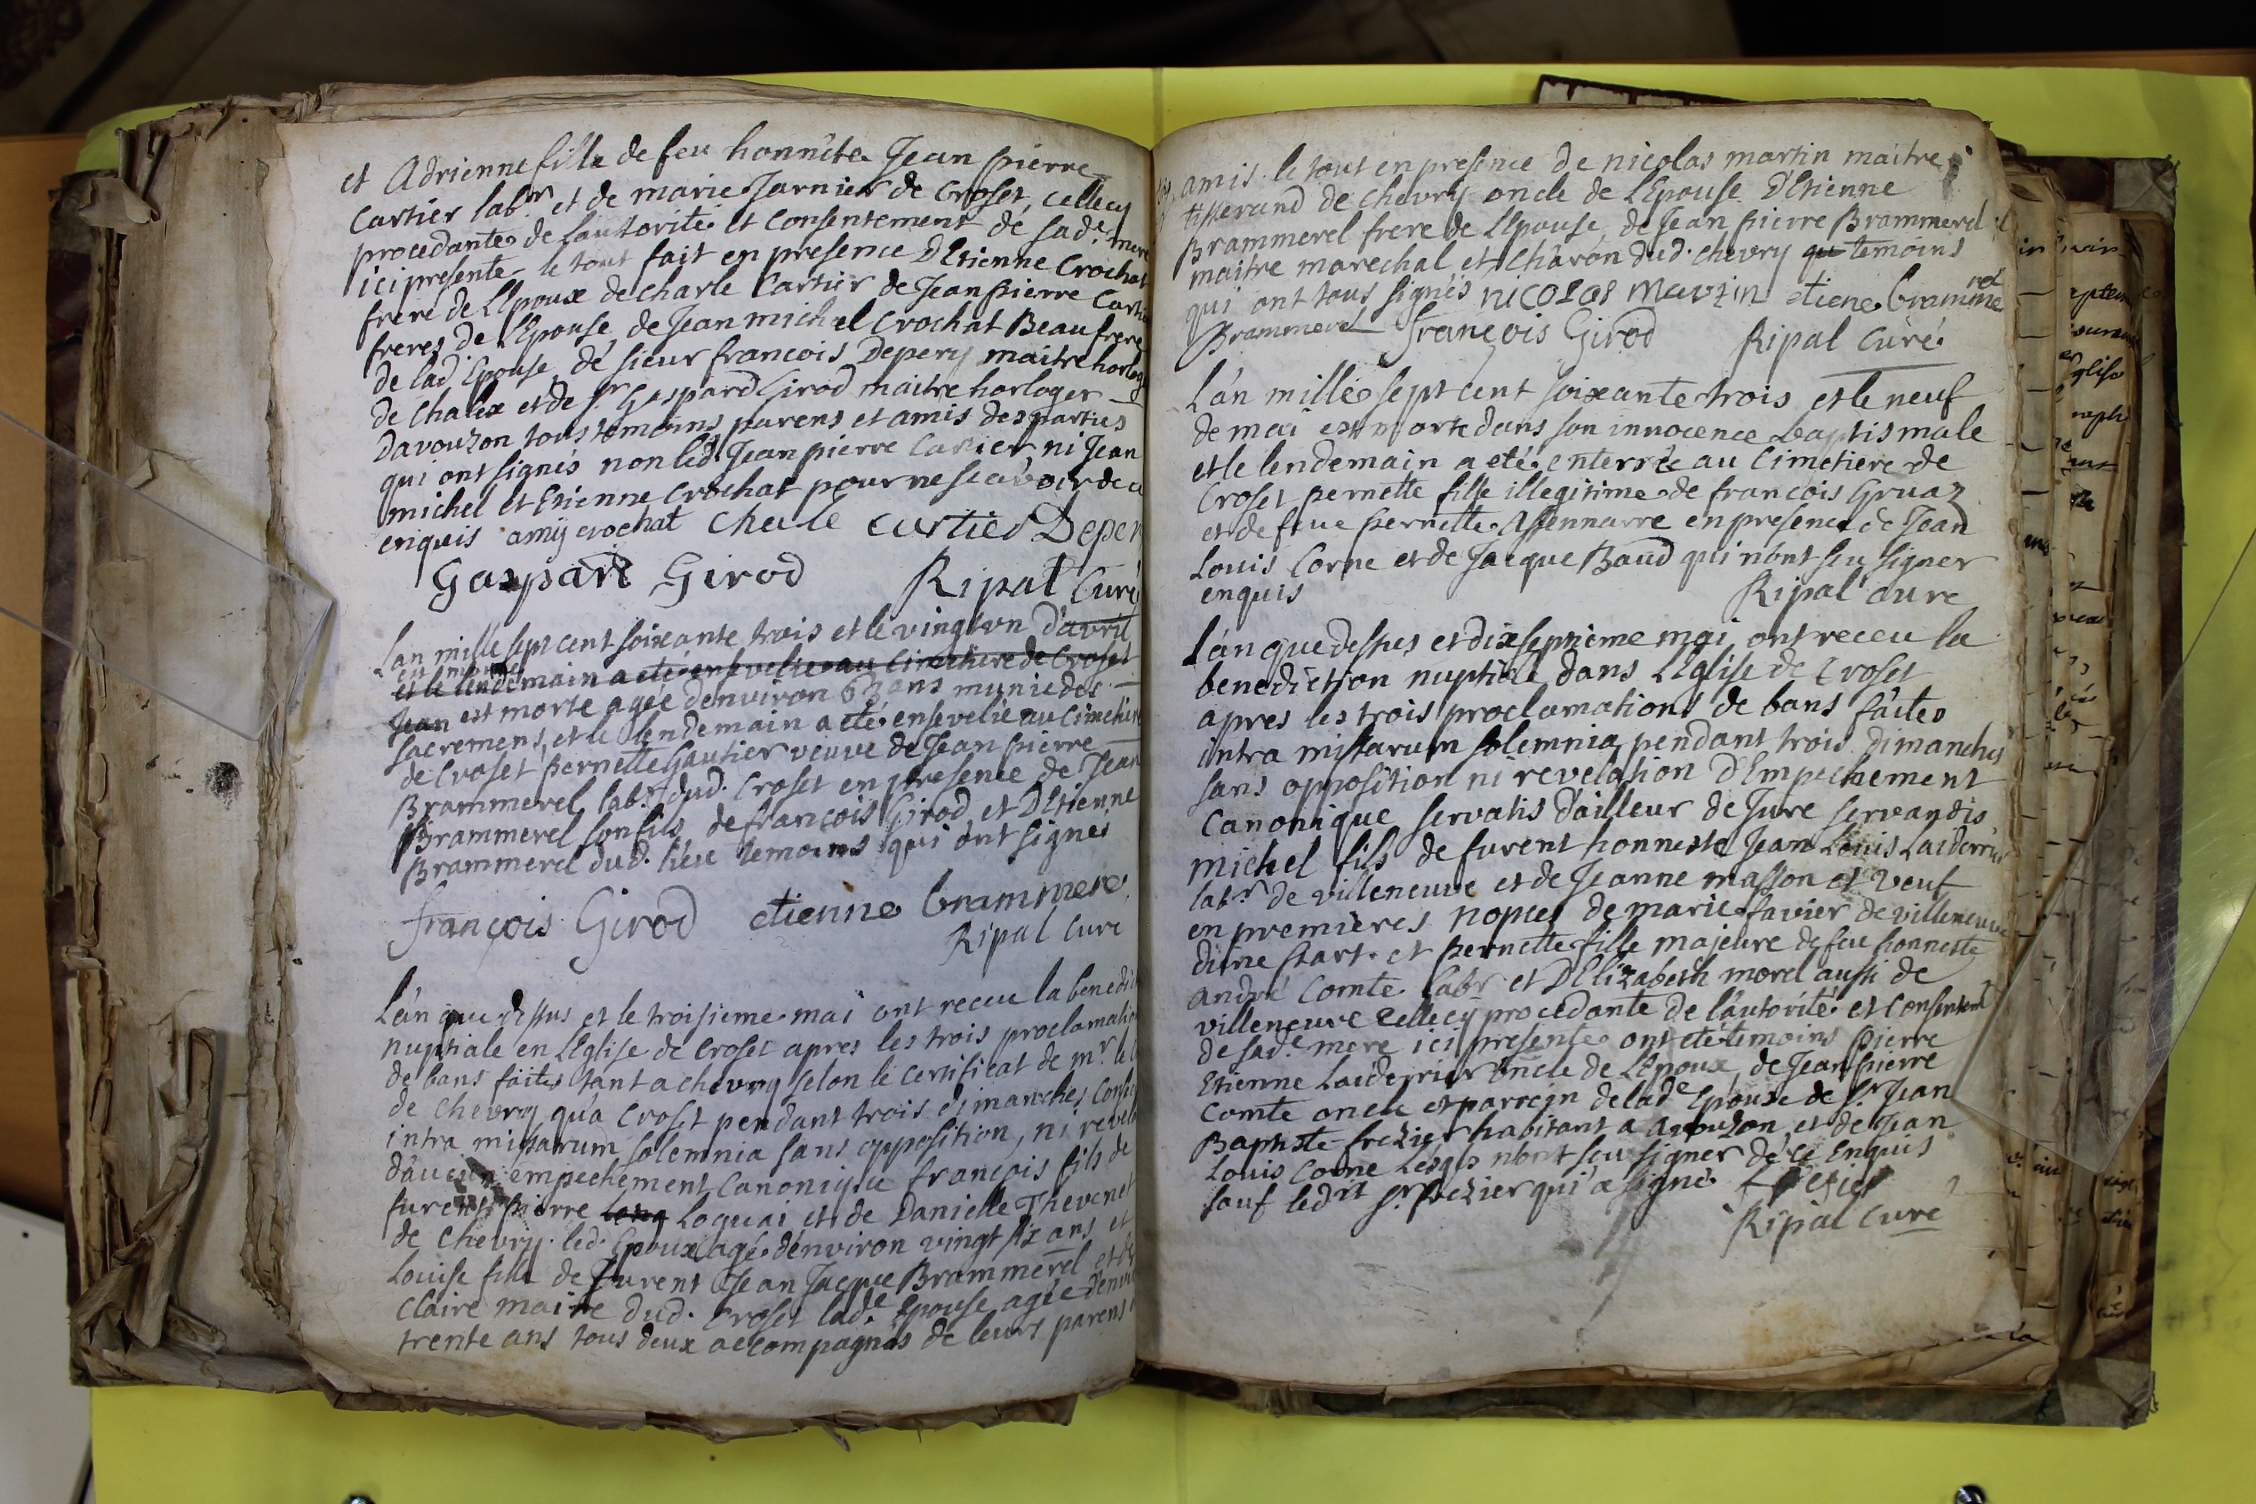 et Adrienne fille de feu honnête Jean pierre
Cartier labr. et de marie Jarnier de Croset, cellecy
procedante de lautorité et consentement de sade. mere
ici presente le tout fait en presence DEtienne Crochat
frere de LEpoux de charle Cartier de Jean pierre Carti
freres de LEpouse, de Jean michel Crochat Beaufrere
de lad Epouse, de sieur francois Depery maitre horlog
de Chalex et de Sr Gaspard Girod maitre horloger
Davouzon tous temoins parens et amis des parties
qui ont signés non led. Jean pierre Cartier ni Jean
michel et Etienne Crochat pour ne sçavoir de ce
enquis amy crochat Charle cartier Deper
Gaspard Girod Ripal Curé
Lan mille sept cent soixante trois et le vingt un d'avril
est morte
et le lendemain a eté ensevelie au Cimetiere de Croset
Jean est morte agée denviron 63 ans munie des
sacremens, et le lendemain a eté ensevelie au Cimetiere
de Croset pernette Gautier veuve de Jean pierre
Brammerel labr. dud. Croset en presence de Jean
Brammerel son fils, de françois Girod et DEtienne
Brammerel dud. lieu temoins qui ont signés
françois Girod etienne brammere
Ripal Cure
L'an que dessus et le troisieme mai ont receu la benedi
nuptiale en LEglise de Croset apres les trois proclamatio
de bans faites tant a chevry selon le certificat de mr. le
de Chevry qu'a Croset pendant trois dimanches Conse
intra missarum solemnia sans opposition, ni revel
d'aucun empechement Canonique françois fils de
furent pierre Loquai et de Danielle Thevenet
de Chevry. led. Epoux agé denviron vingt six ans et
Louise fille de furent Jean Jacque Brammerel et de
Claire maire dud. Croset lade. Epouse agée d'envi
trente ans tous deux accompagnés de leurs parens
amis. le tout en presence de nicolas martin maitre
tisserand de chevry oncle de LEpouse D'Etienne
Brammerel frere de LEpouse, de Jean pierre Brammerel
maitre marechal et chârôn dud. chevry qu temoins
qui ont tous signés nicolas martin etiene bramme
rel
Brammerel françois Girod Ripal Curé.
L'an mille sept cent soixante trois et le neuf
de mai est morte dans son innocence baptismale
et le lendemain a eté enterrée au Cimetiere de
Croset pernette fille illegitime de françois Gruaz
et de feue pernette Assennarre en presence de Jean
Louis Corne et de Jacque Baud qui n'ont seu signer
enquis Ripal cure
L'an que dessus et dix septieme mai, ont receu la
benediction nuptiale dans LEglise de Croset
apres les trois proclamations de bans faites
intra missarum solemnia pendant trois dimanches
sans opposition ni revelation d'Empechement
canonique servatis d'ailleur de Jure servandis
michel fils de furent honneste Jean Louis Laiderrier
labr. de villeneuve et de Jeanne masson et veuf
en premieres nopces de marie favier de villeneuve
dime part. et pernette fille majeure de feu honneste
andré Comte labr et DElizabeth morel aussi de
villeneuve cellecy procedante de l'autorité et consentemt
de sade. mere ici presente ont eté temoins pierre
Etienne Laiderrier oncle de LEpoux, de Jean pierre
Comte oncle et parrein de lade Epouse de Sr. Jean
Baptiste frezier habitant a avouzon et de Jean
Louis Corne Lesqls n'ont seu signer de ce Enquis
sauf ledit Sr. frezier qui a signé. frezier
Ripal Curé